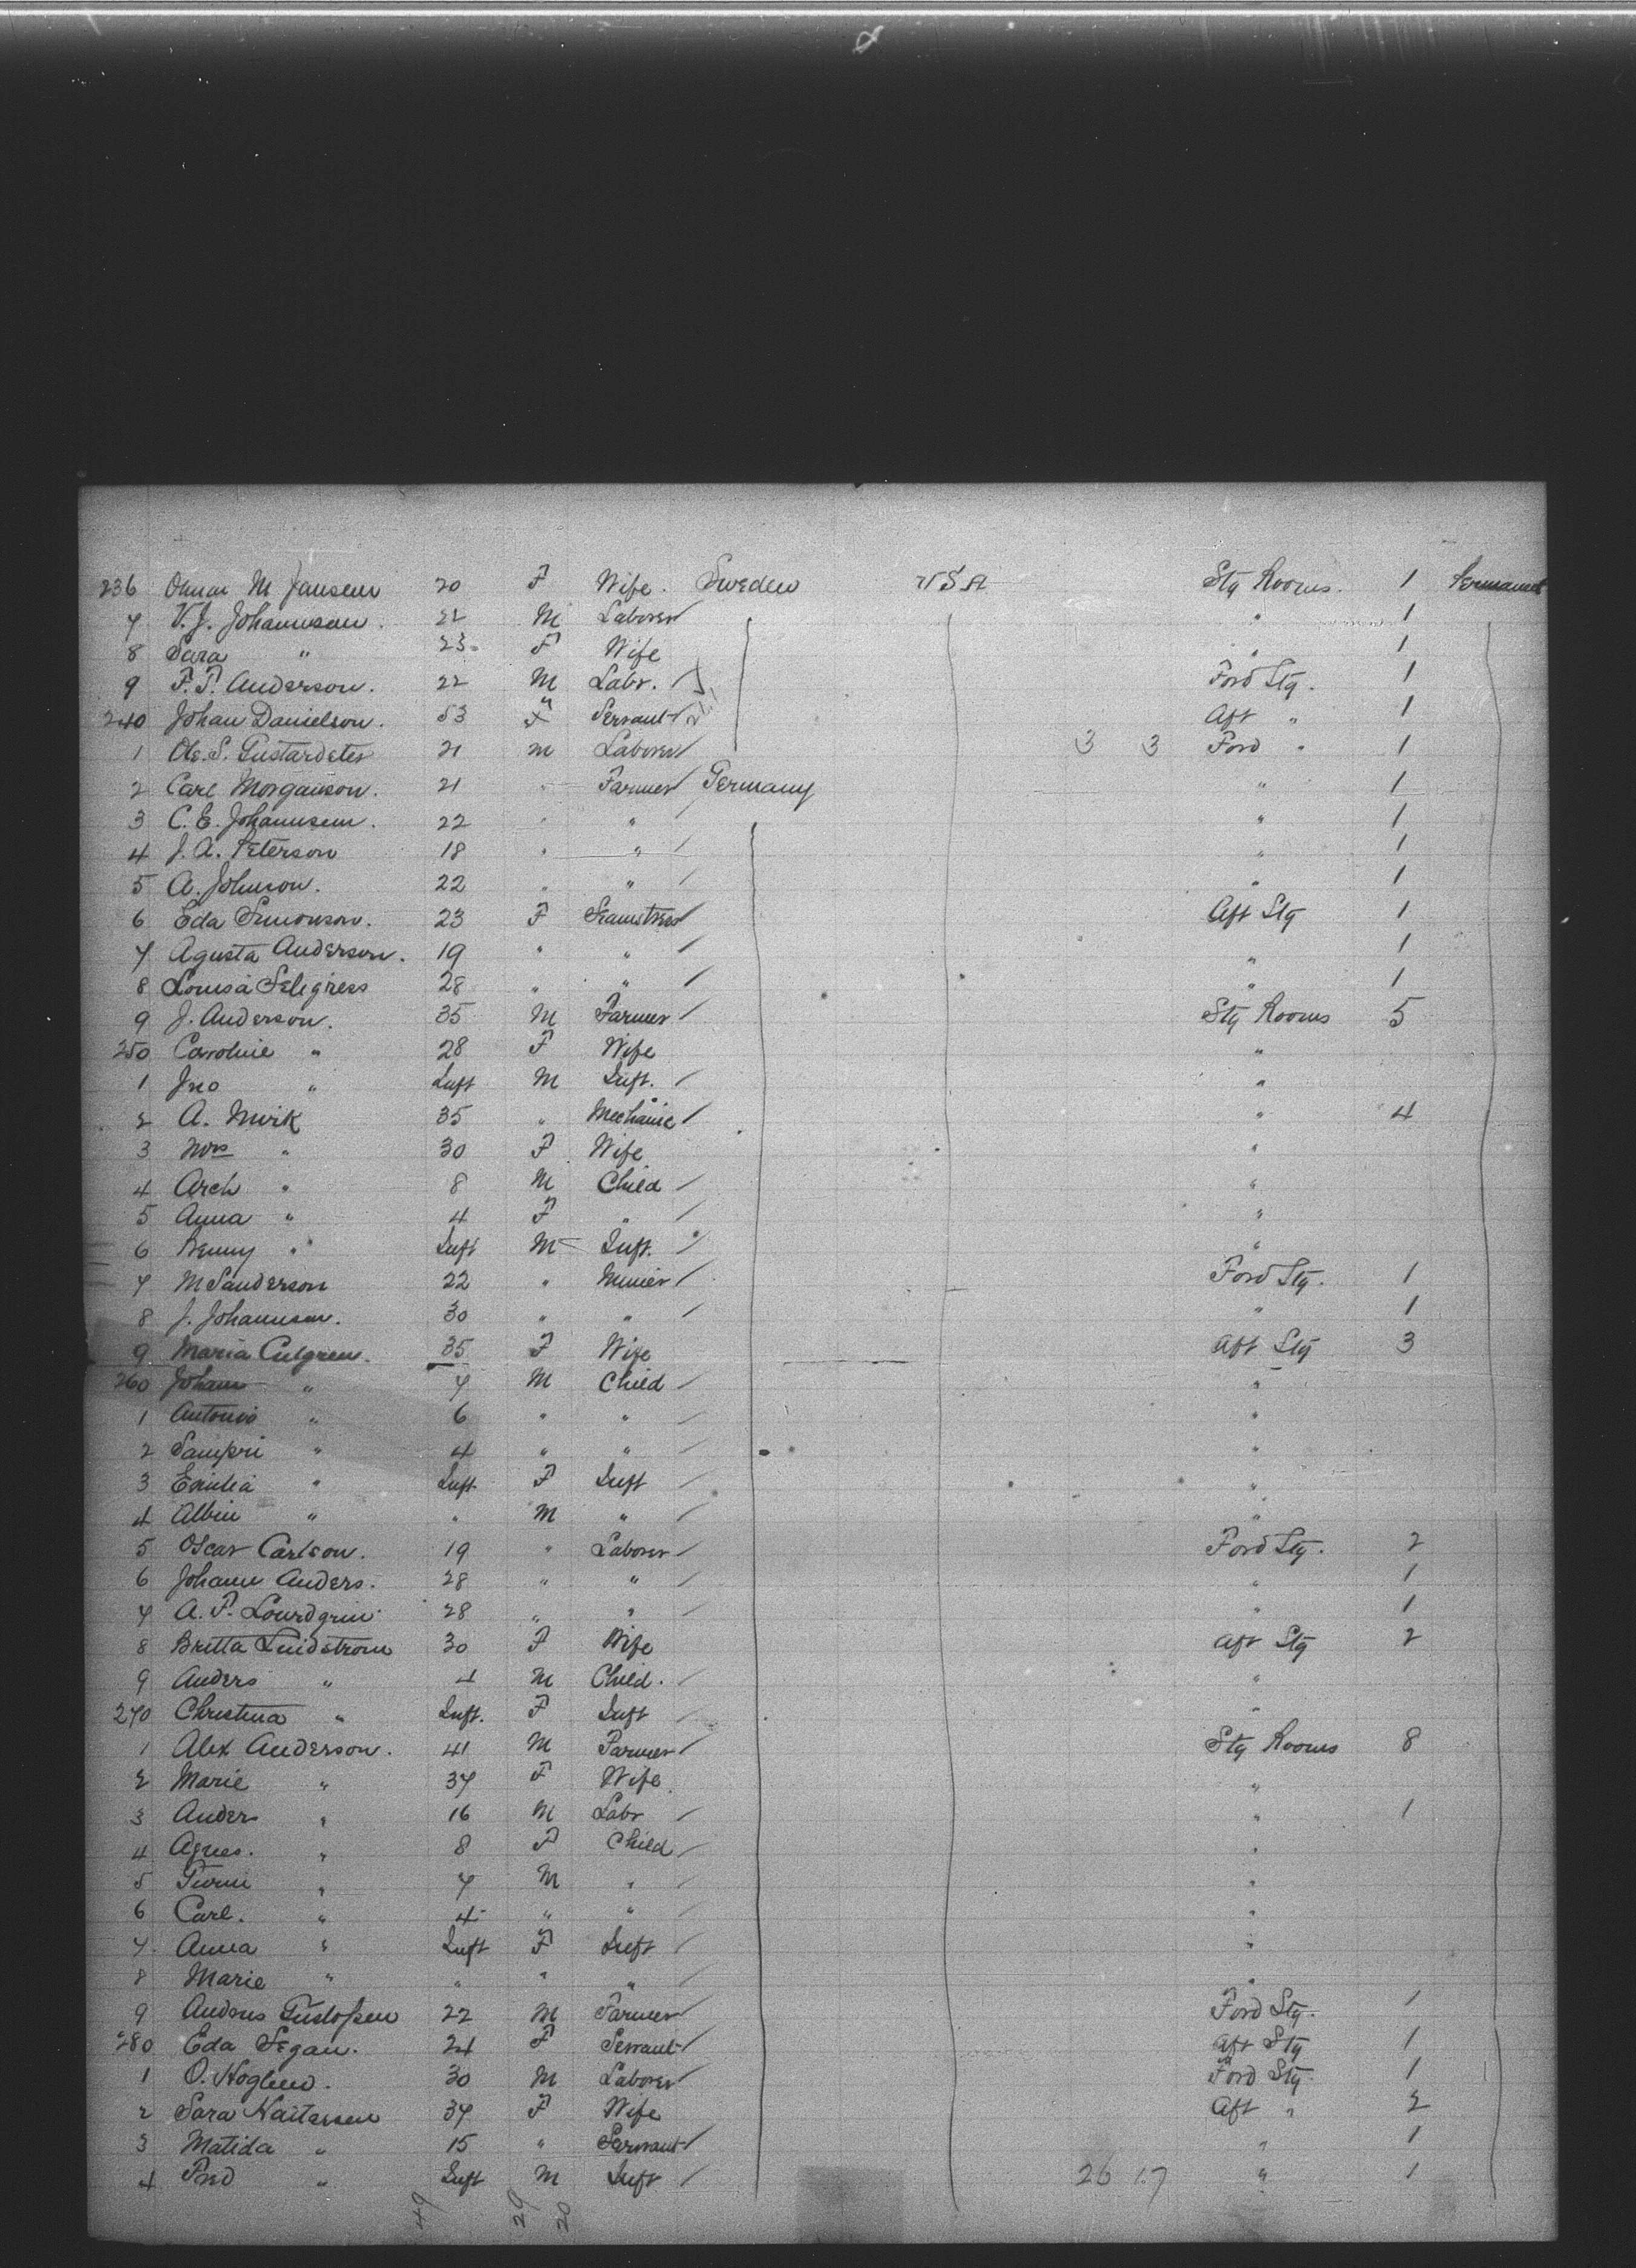 236 M Jansen 20 F Wife. Sweden USA Stg Rooms. 1 Permanent
7 V. J. Johannsen. 22 M Laborer " 1
8 Sara " 23 F Wife " 1
9 F. F. Anderson. 22 M Labr. Ford Stg. 1
240 Johan Danielson. 53 " Servant Aft " 1
1 Ole. S. 21 m Laborer 3 3 Ford " 1
2 Carl Morganson. 21 " Farmer Germany " 1
3 C. E. Johannsen. 22 " " " 1
4 J. A. Peterson 18 " " " 1
5 A. Johnson. 22 " " " 1
6 Eda Simonson. 23 F Seamstress Aft Stg 1
7 Agusta Anderson. 19 " " " 1
8 Lousia 28 " " " 1
9 J. Anderson. 35 M Farmer Stg Rooms 5
250 Caroline " 28 F Wife "
1 Jno " Inft M Inft. "
2 A. Mirk 35 " Mechanic " 4
3 Mrs " 30 F Wife "
4 Arch " 8 M Child "
5 Anna " 4 F " "
6 Benny " Inft M Inft. "
7 M Sanderson 22 " Miner Ford Stg. 1
8 J. Johannsen. 30 " " " 1
9 Maria Culgren. 35 F Wife Aft Stg 3
260 Johann " 7 M Child "
1 Antonio " 6 " " "
2 Sampri " 4 " " "
3 Emilia " Inft. F Inft "
4 Albin " " M " "
5 Oscar Carlson. 19 " Laborer Ford Stg. 2
6 Johann Anders. 28 " " " 1
7 A. F. Lourdgrin 28 " " " 1
8 Britta Lindstrom 30 F Wife Aft Stg 2
9 Anders " 4 M Child. "
270 Christina " Inft. F Inft "
1 Alex Anderson. 41 M Farmer Stg Rooms 8
2 Marie " 37 F Wife "
3 Anders " 16 M Labr " 1
4 Agnes. " 8 F Child "
5 " 7 M " "
6 Carl. " 4 " " "
7 Anna " Inft F Inft "
8 Marie " " " " "
9 Anders Gustofsen 22 M Farmer Ford Stg. 1
280 Eda Segan. 24 F Servant Aft Stg 1
1 O. Hoglund. 30 M Laborer Ford Stg. 1
2 Sara 37 F Wife Aft " 2
3 Matida " 15 " Servant " 1
4 Fred " Inft M Inft 26 17 " 1
49 29 20